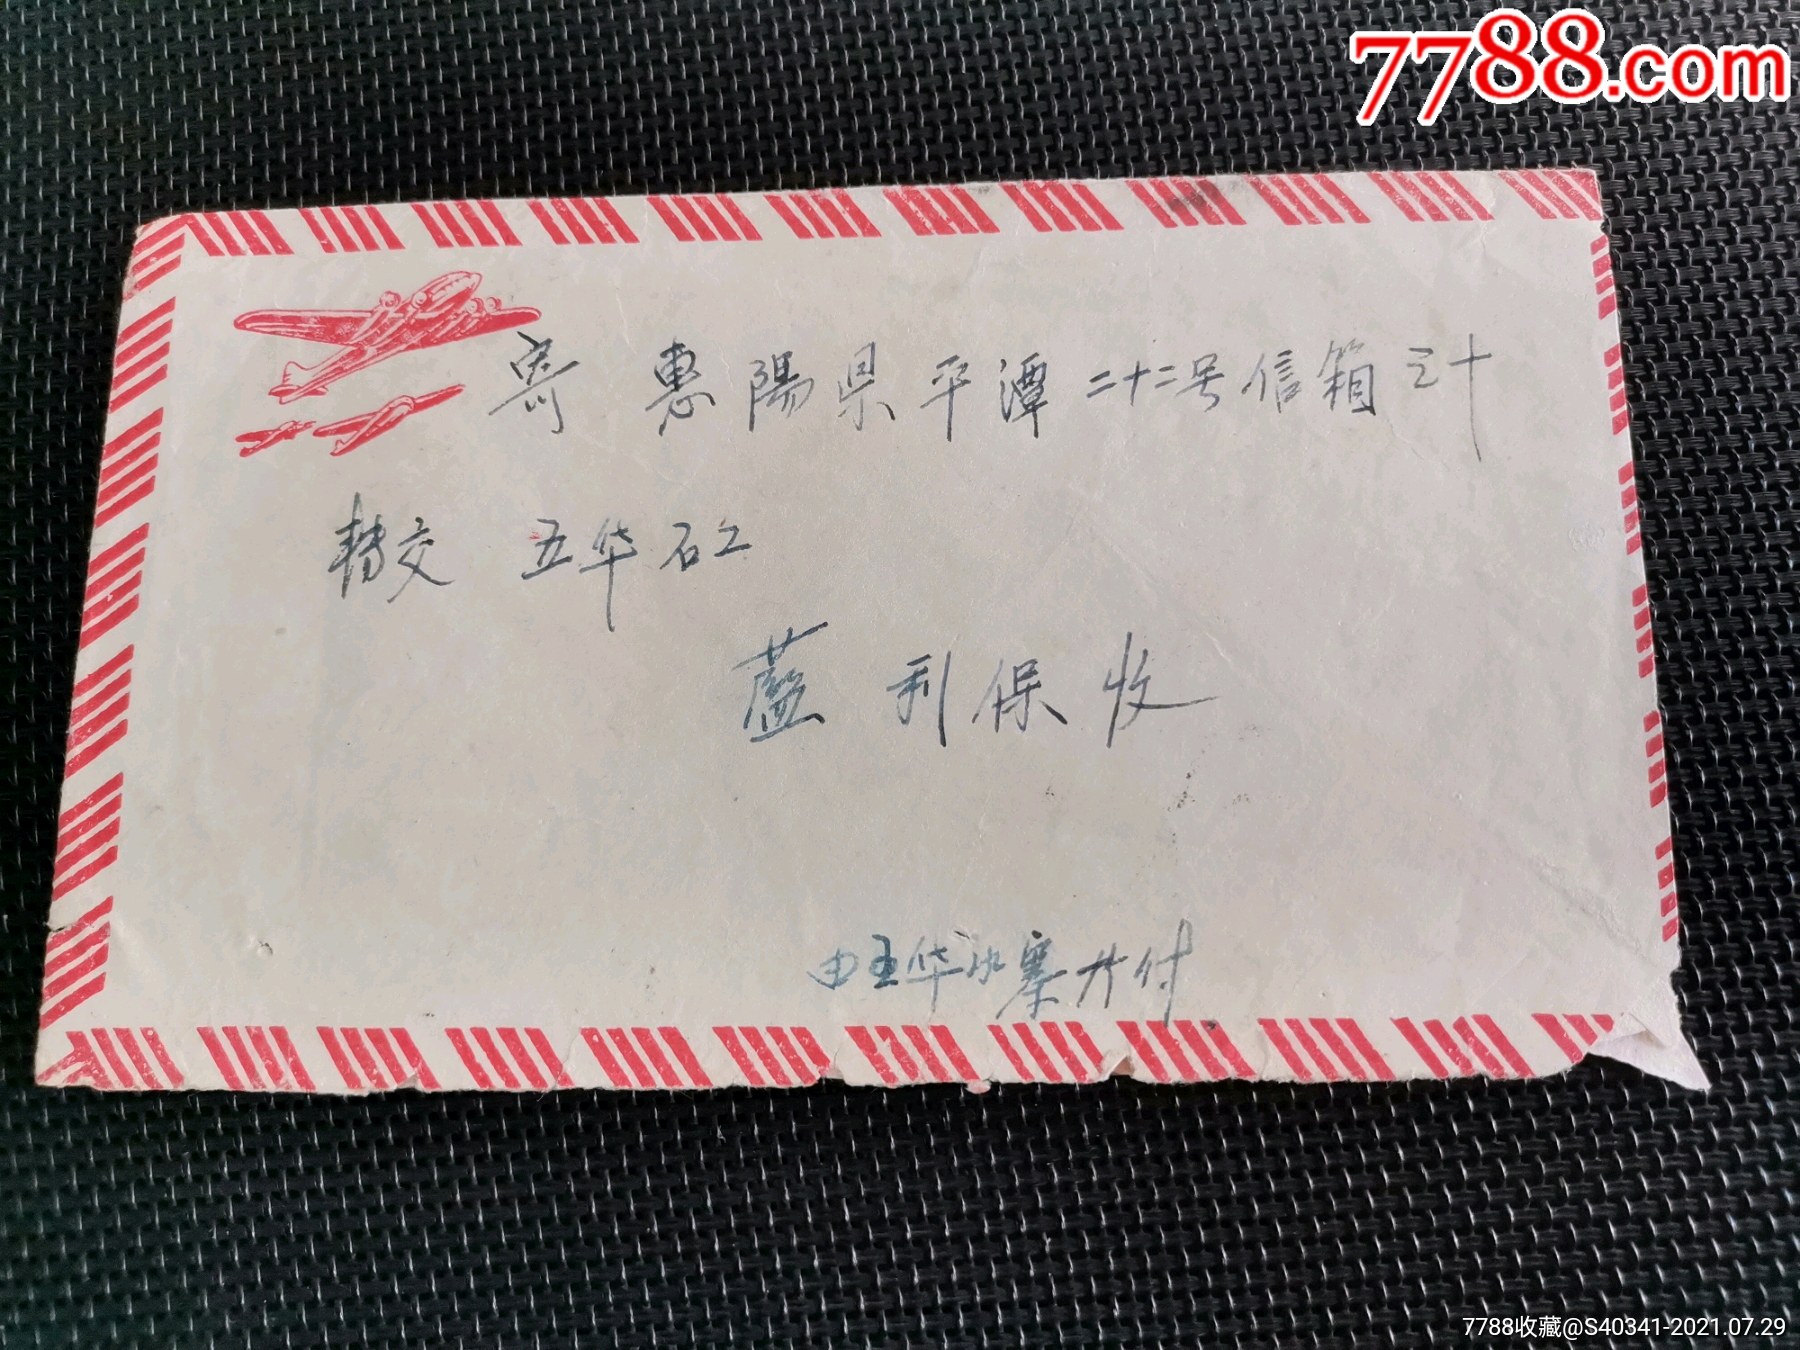 7788.com
寄 惠陽県平潭二十二号信箱三十
轉交 五华石工
藍利保收
由五华水寨升付
7788收藏@S40341-2021.07.29